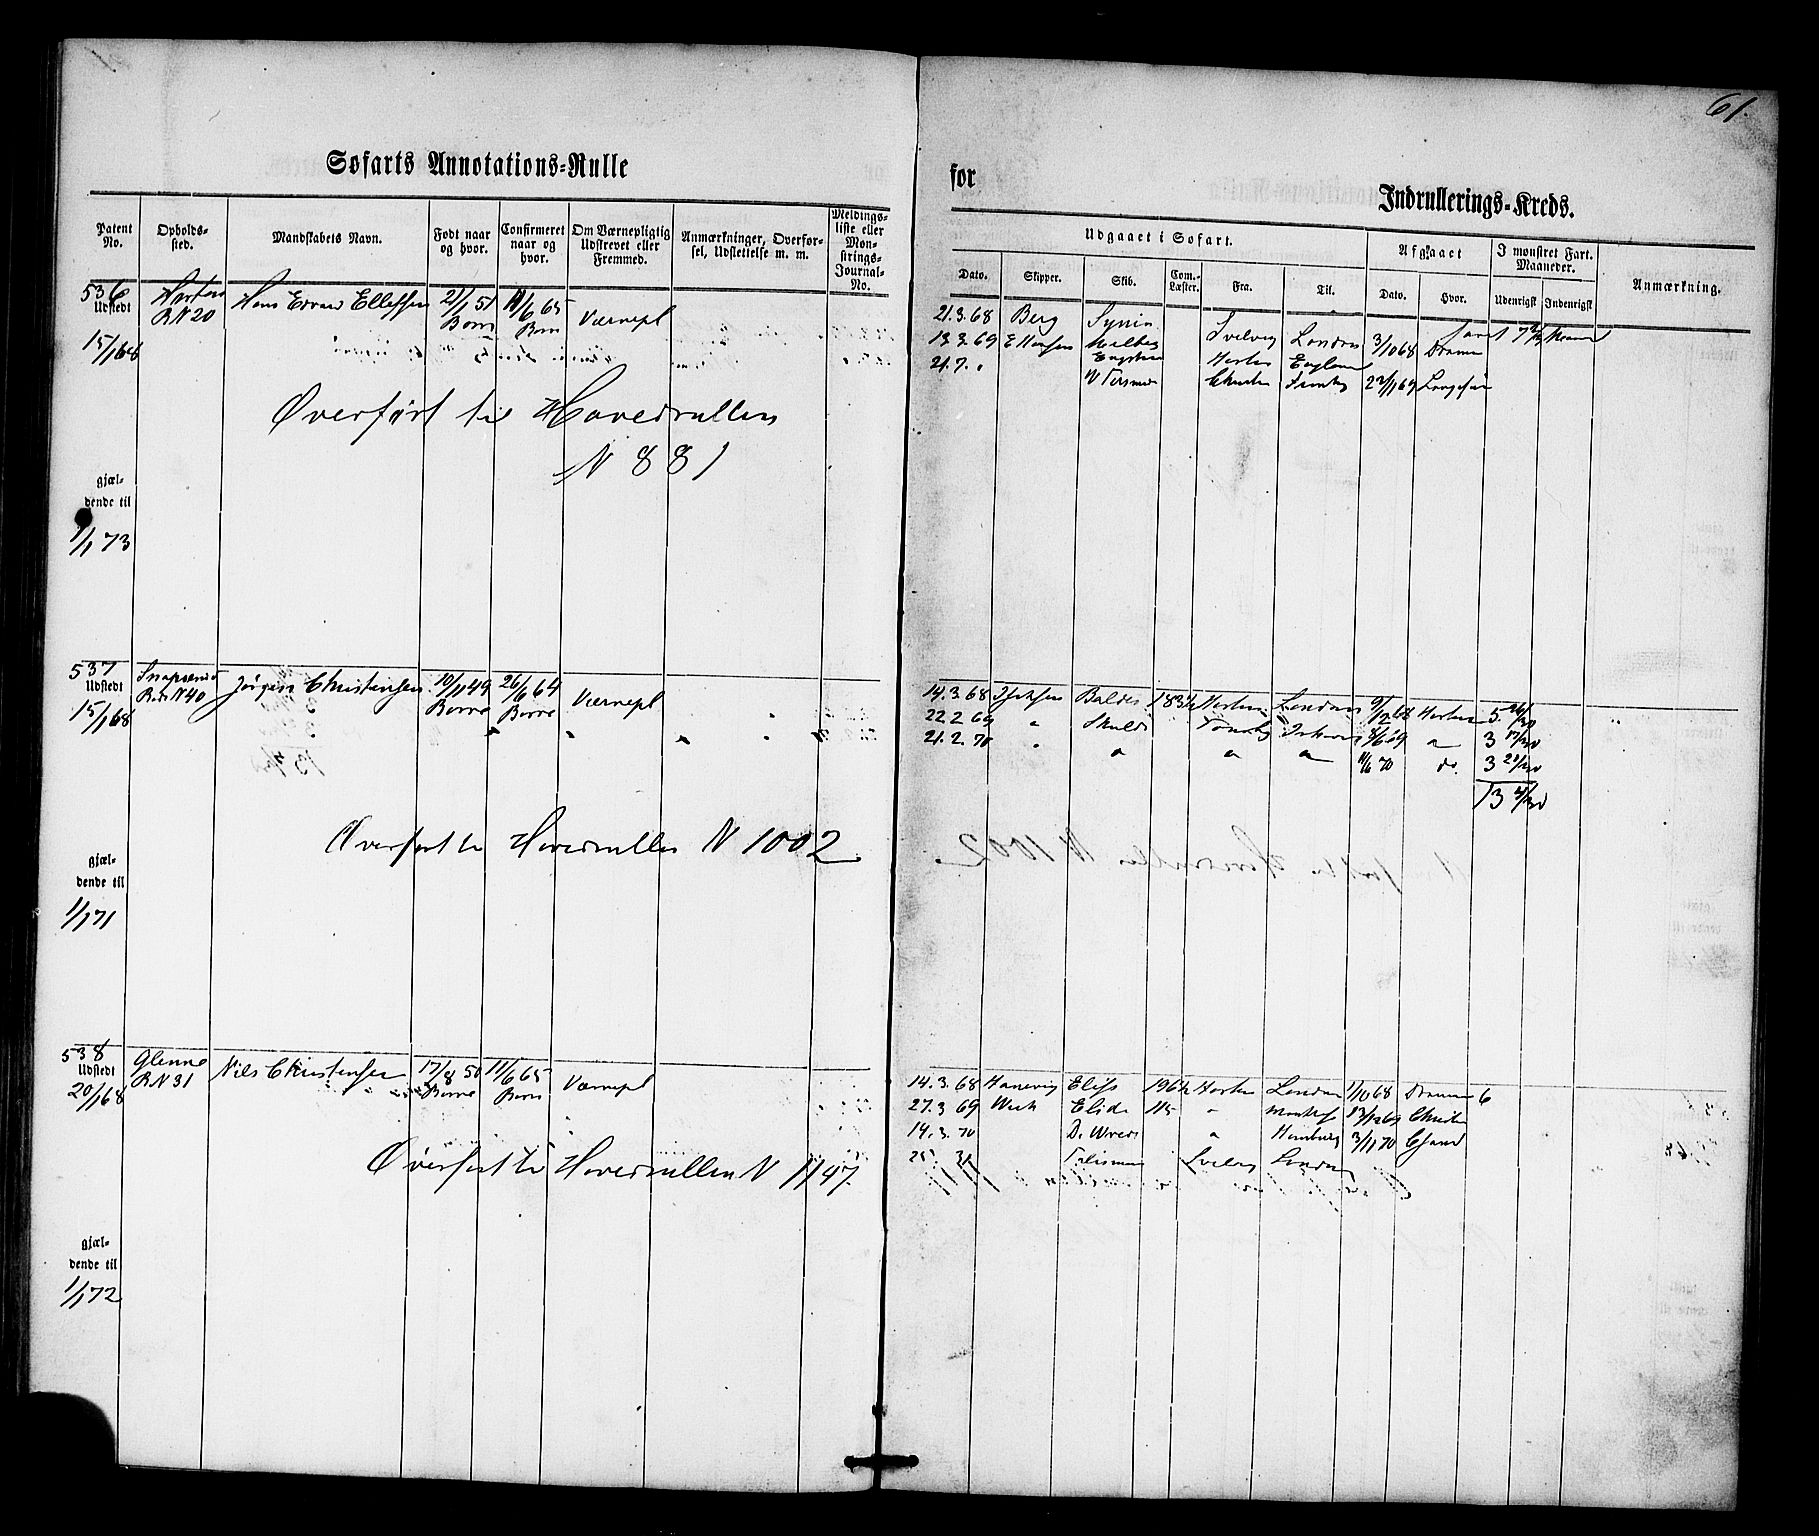 61.
Søfarts Annotations-Rulle
for
Indrullerings-Kreds.
Patent No.
Opholds-sted.
Mandskabets Navn.
Født naar og hvor.
Confirmeret naar og hvor.
Om Værnepligtig Udskrevet eller Fremmed.
Anmærkninger, Overførsel, Udslettelse m. m.
Meldings-liste eller Mønstrings-Journal-No.
Udgaaet i Søfart.
Afgaaet
I mønstret Fart. Maaneder.
Anmærkning.
Dato.
Skipper.
Skib.
Com.-Læster.
Fra.
Til.
Dato.
Hvor.
Udenrigsk
Indenrigsk
536 Horten Hans Edvard Ellefsen 21/1 51 11/6 65 Værnepl
Udstedt R N 20 Borre Borre
15/1 68
21.3.68 Berg Svelvig London 3/10 68 Dramm
13.3.69 Ellefsen Horten England
21.7. "
22/1 69
Overført til Hovedrullen
N 881
gjæl-
dende til
1/1 73
537 Jørgen Christensen 10/11 49 26/6 64 Værnepl
Udstedt N 40 Borre Borre
15/1 68
14.3.68 Balder 183½ Horten London 9/12 68 Horten 5 26/30
22.2 69 " Skuld Tønsb 8/6 69 " 3 17/30
21.2.70 " " " " 11/6 70 do. 3 21/30
13 4/30
Overført til Hovedrullen N 1002
gjæl-
dende til
1/1 71
538 Glenne Nils Christensen 17/8 50 11/6 65 Værnepl
Udstedt R N 31 Borre Borre
20/1 68
14.3.68 Hanevig Eliss 196½ Horten London 1/10 68 Dramm 6
27.3 69 Elida 115 " 13/12 69 Christ
14.3.70 " Hamburg 3/11 70
Talisman Svelvig London
Overført til Hovedrullen N 1147
gjæl-
dende til
1/1 72